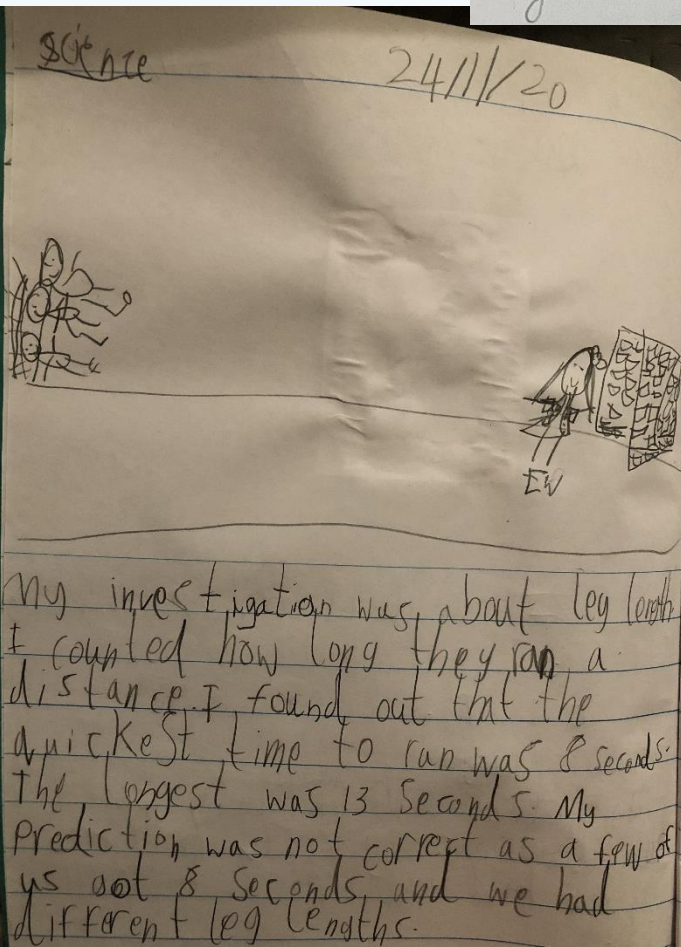 Science
24/11/20
EW
My investigation was about leg length
I counted how long they ran a
distance. I found out that the
quickest time to run was 8 seconds.
The longest was 13 seconds. My
prediction was not correct as a few of
us got 8 seconds and we had
different leg lengths.